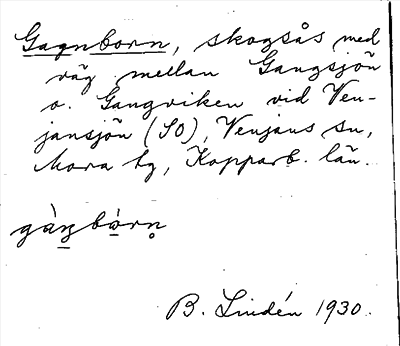 Gagnborn, skogsås med
väg mellan Gangsjön
o. Gangviken vid Ven-
jansjön (SO), Venjans sn,
Mora tg, Kopparb. län.
gàŋbòrn̥
B. Lindén 1930.